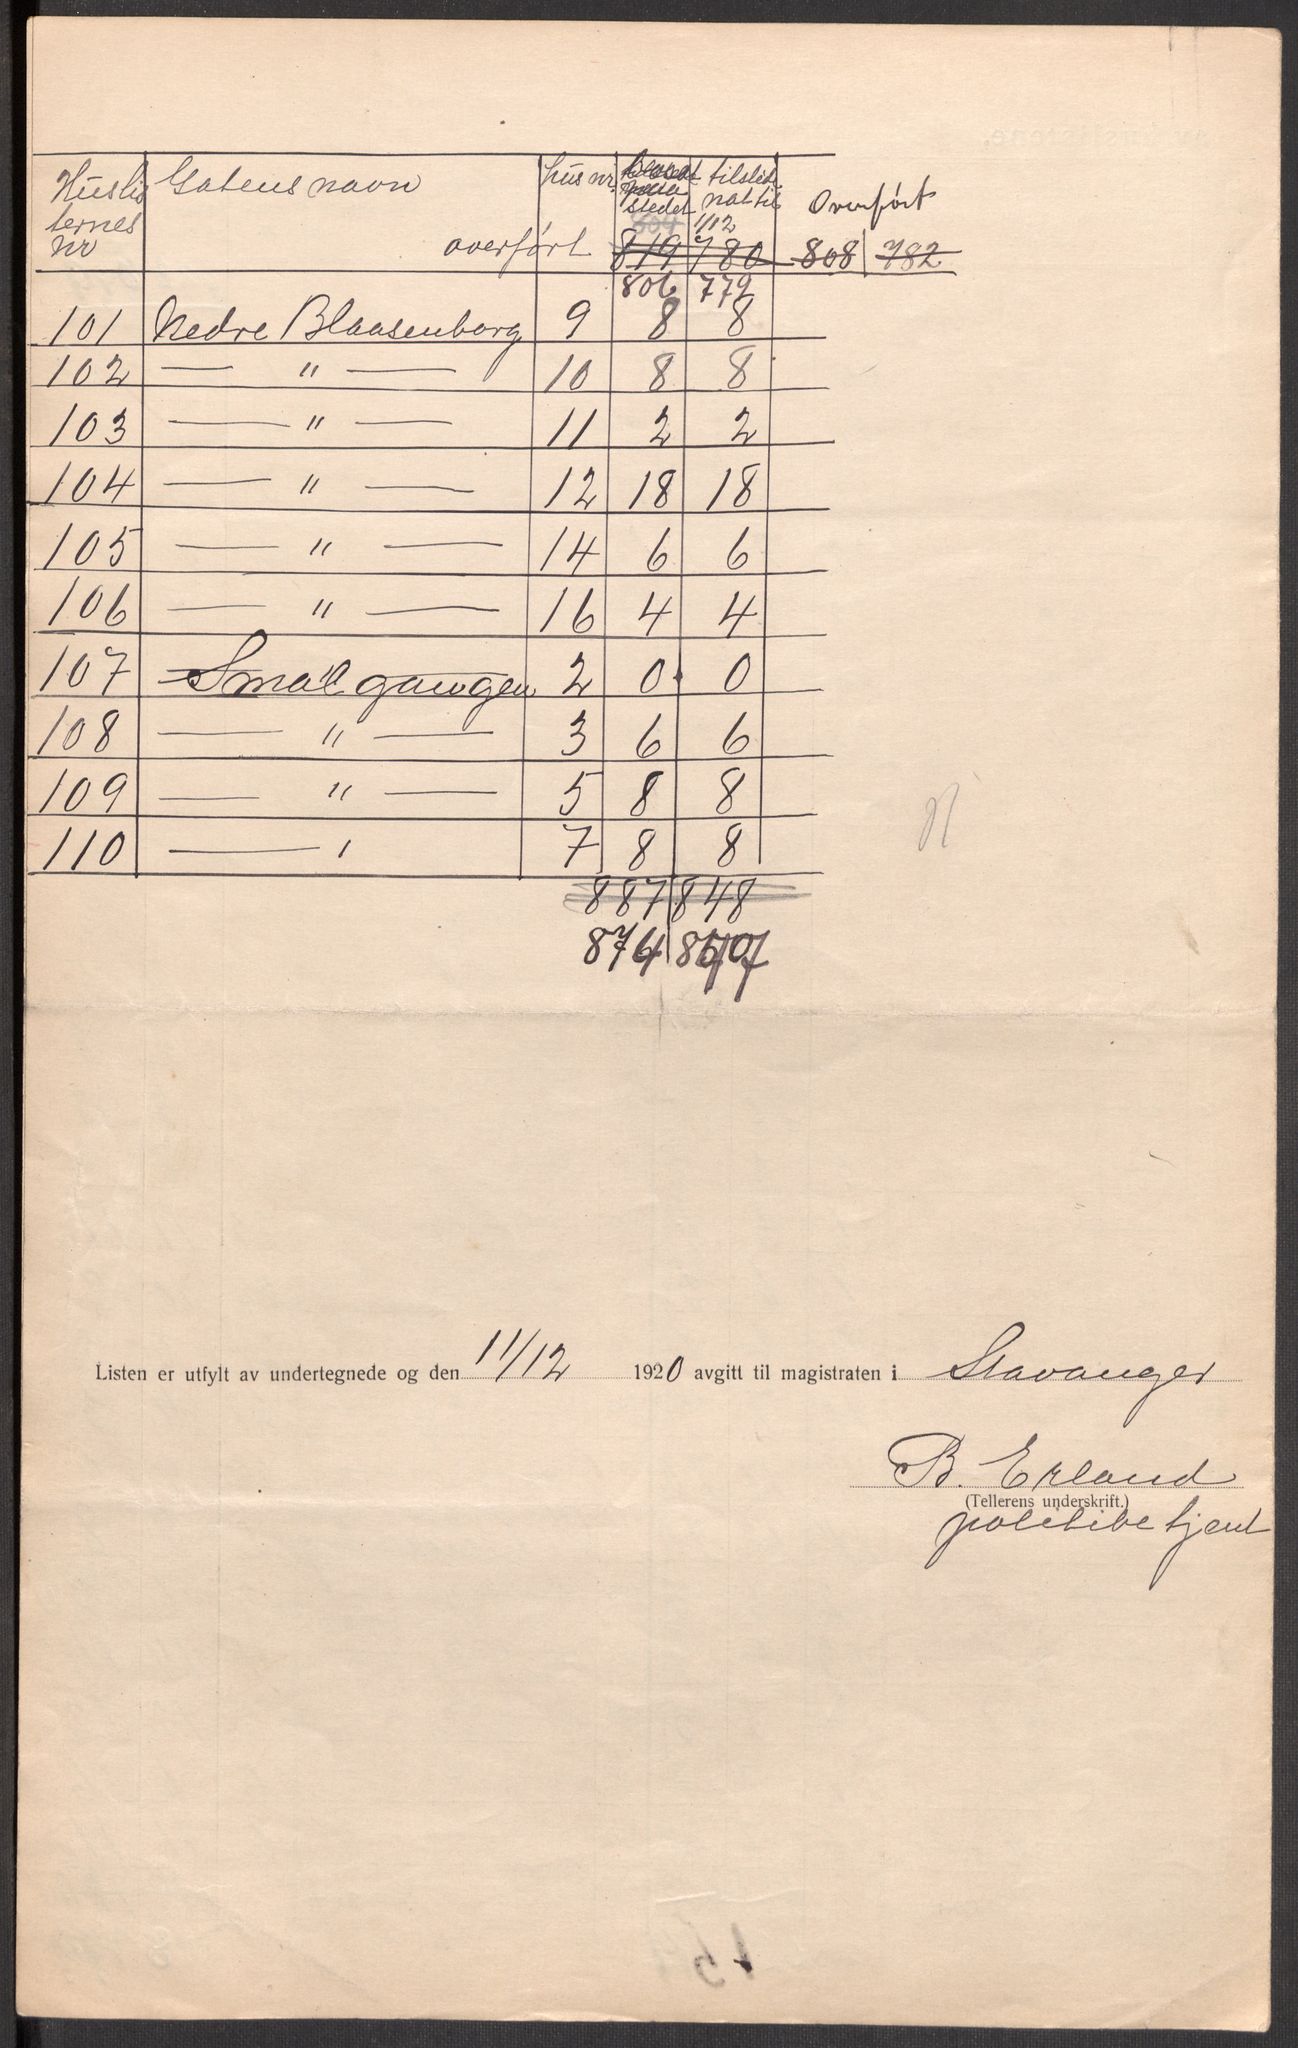 Huslis Gatens navn hus nr. bosat tilstede
ternes paa nat til Overført
nr stedet 1/12
604
overført 819 780 808 782
806 779
101 Nedre Blaasenborg 9 8 8
102 — " — 10 8 8
103 — " — 11 2 2
104 — " — 12 18 18
105 — " — 14 6 6
106 — " — 16 4 4
107 Smalgangen 2 0 0
108 — " — 3 6 6
109 — " — 5 8 8
110 — " 7 8 8
887 848
874 847
Listen er utfylt av undertegnede og den 11/12 1920 avgitt til magistraten i Stavanger
B. Erland
(Tellerens underskrift.)
politibetjent